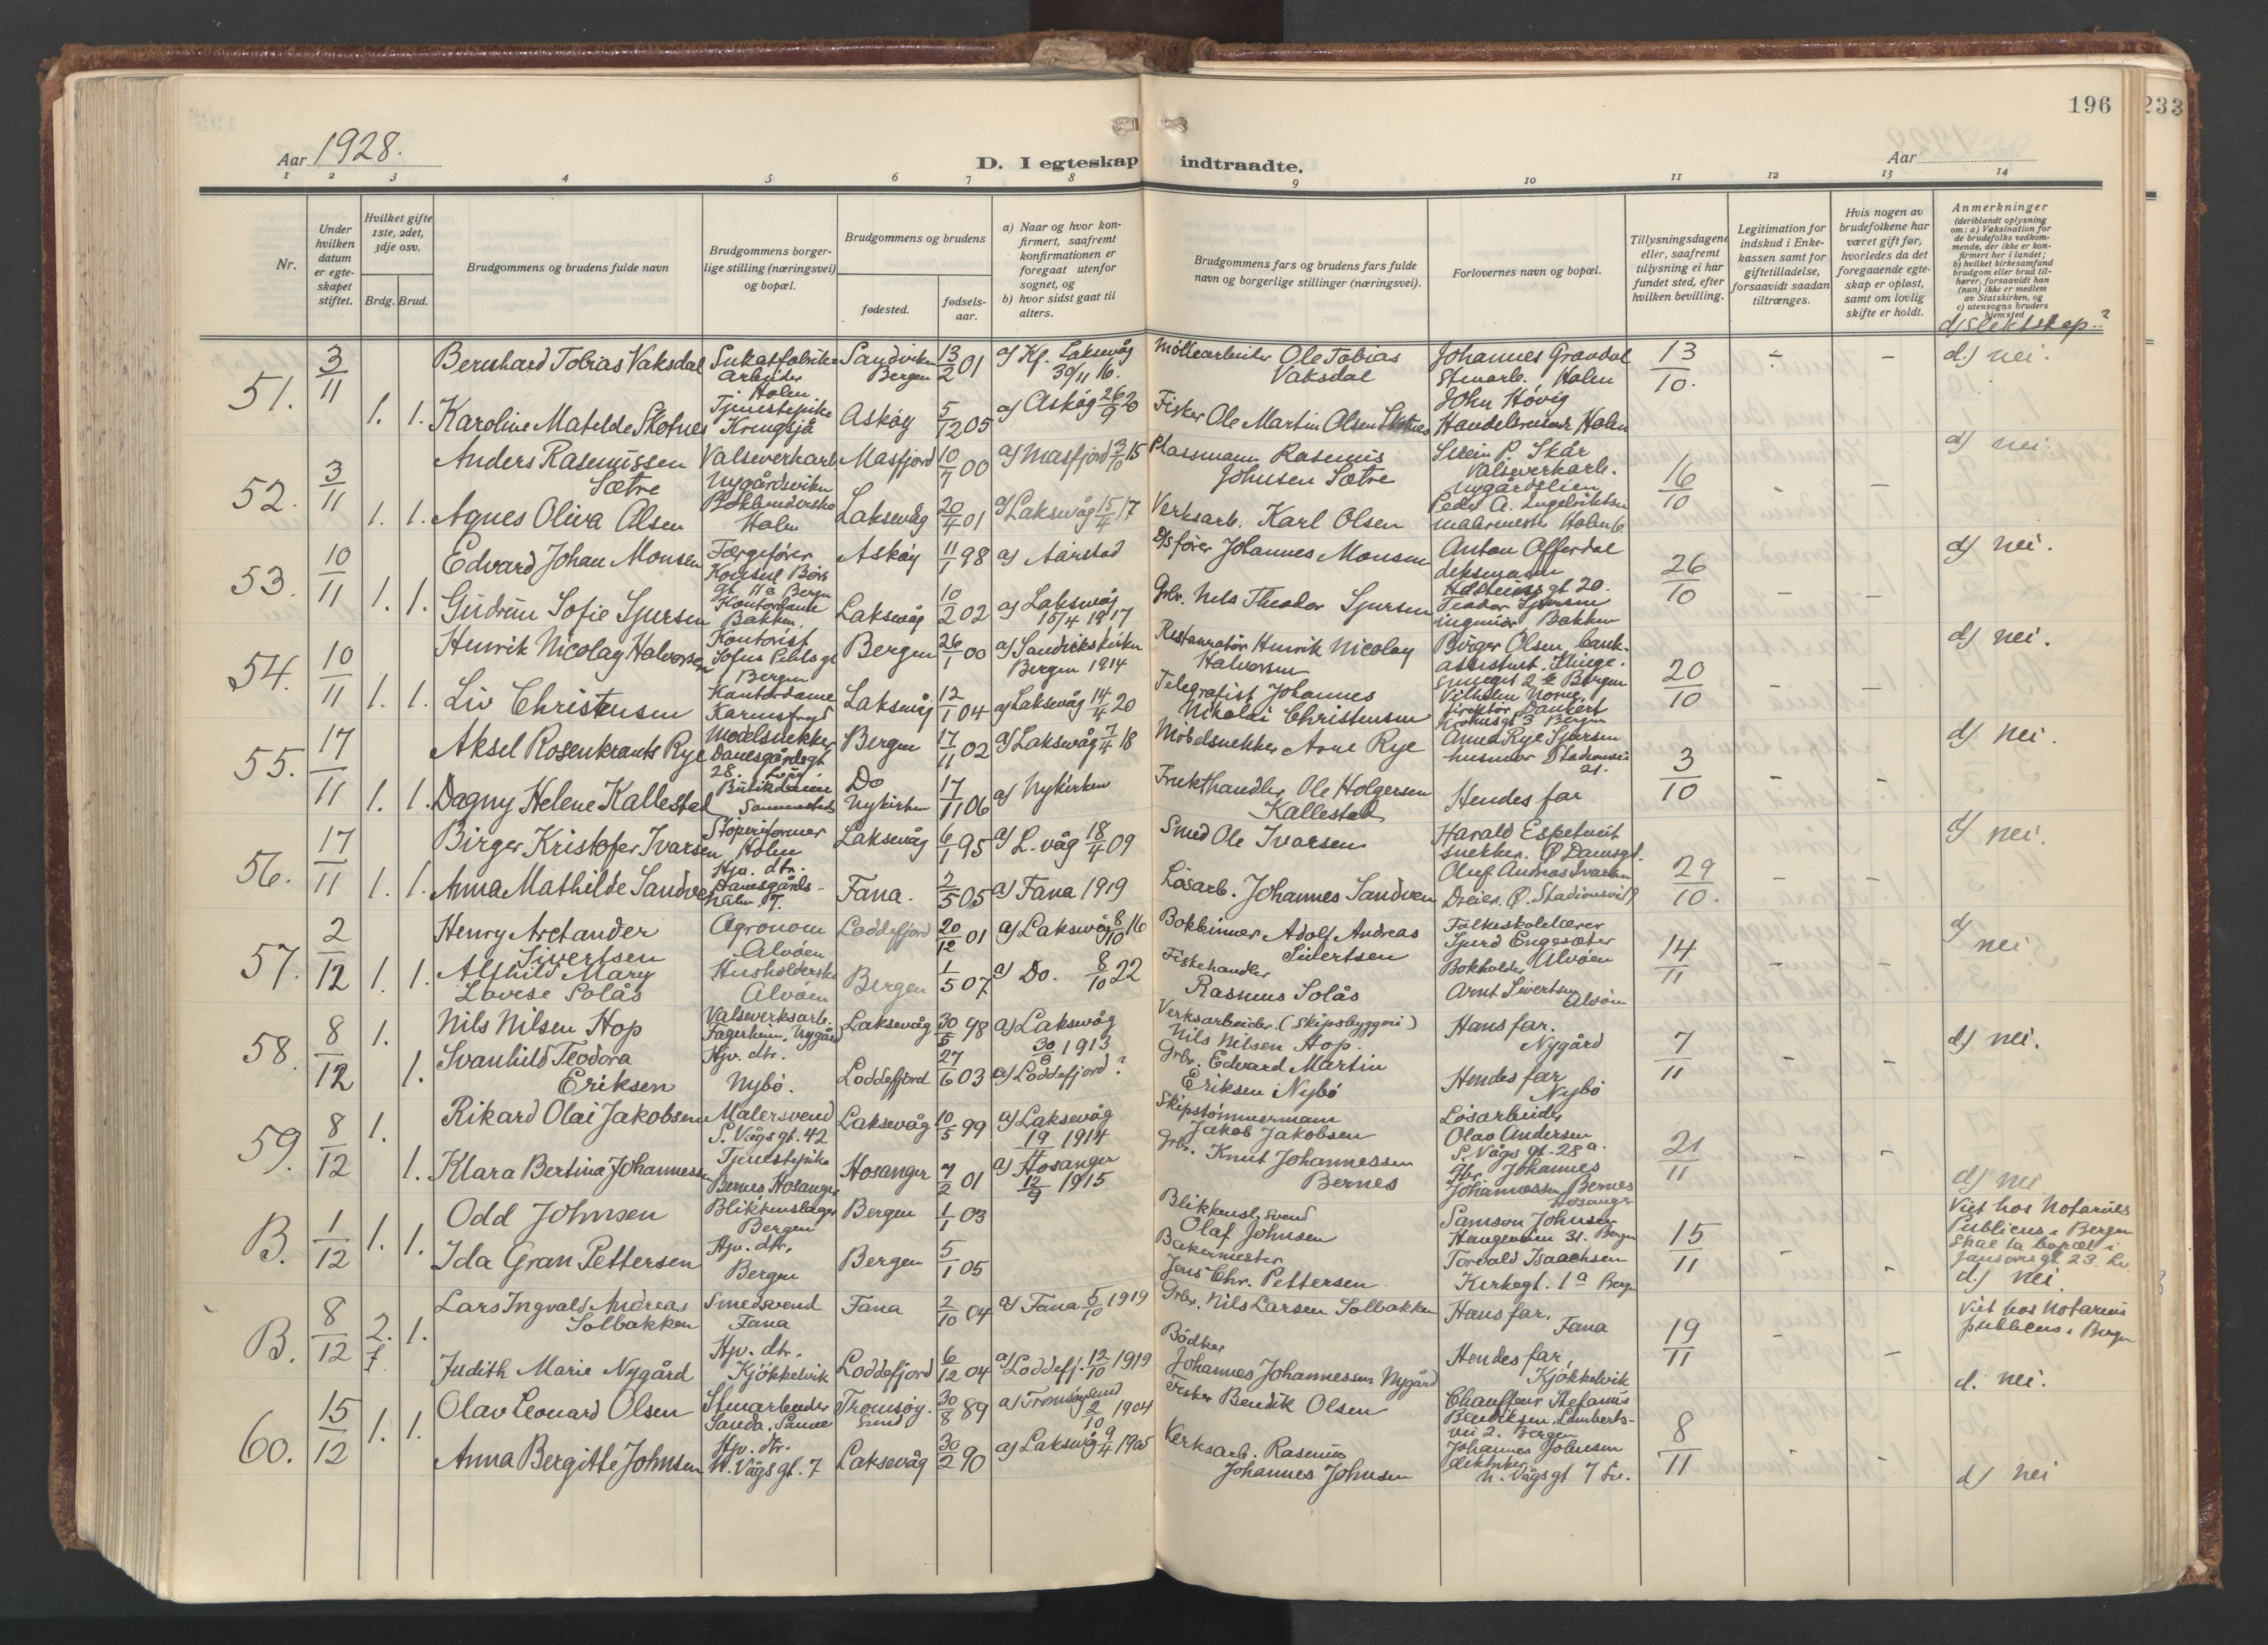 196
233
Aar 1928.
D. I egteskap indtraadte.
Aar
1 2 3 4 5 6 7 8 9 10 11 12 13 14
Nr.
Under hvilken datum er egteskapet stiftet.
Hvilket gifte 1ste, 2det, 3dje osv.
Brdg. Brud.
Brudgommens og brudens fulde navn
Brudgommens borgerlige stilling (næringsvei) og bopæl.
Brudgommens og brudens
fødested.
fødselsaar.
a) Naar og hvor konfirmert, saafremt konfirmationen er foregaat utenfor sognet, og
b) hvor sidst gaat til alters.
Brudgommens fars og brudens fars fulde navn og borgerlige stillinger (næringsvei).
Forlovernes navn og bopæl.
Tillysningsdagene eller, saafremt tillysning ei har fundet sted, efter hvilken bevilling.
Legitimation for indskud i Enkekassen samt for giftetilladelse, forsaavidt saadan tiltrænges.
Hvis nogen av brudefolkene har været gift før, hvorledes da det foregaaende egteskap er opløst, samt om lovlig skifte er holdt.
Anmerkninger
(deriblandt oplysning om: a) Vaksination for de brudefolks vedkommende, der ikke er konfirmert her i landet; b) hvilket kirkesamfund brudgom eller brud tilhører, forsaavidt han (hun) ikke er medlem av Statskirken, og c) utensogns bruders hjemsted
d) slektskap..?
51. 3/11 1. 1.
Bernhard Tobias Vaksdal
arbeider Holen
Sandviken Bergen 13/2 01
a) Kf. Laksevåg 30/11 16.
Møllearbeider Ole Tobias Vaksdal
Johannes Gravdal
Stenarb. Holen
13/10. - - d.) nei.
Karoline Matelde Skotnes
Tjenestepike Kringsjå
Askøy 5/12 05
a) Askøy 26/9 20
Fisker Ole Martin Olsen Skotnes
John Høvig
Holen
52. 3/11 1. 1.
Anders Rasmussen Sætre
Valseverkarb. Nygårdsviken
Masfjord 10/7 00
a) Masfjord 3/10 15
Plassmann Rasmus Johnsen Sætre
Svein P. Skår
Valseverkarb. Nygårdslien
16/10 - - d) nei.
Agnes Oliva Olsen
Holen
Laksevåg 20/4 01
a) Laksevåg 15/4 17
Verksarb. Karl Olsen
Peder A.
malermester Holen
53. 10/11 1. 1.
Edvard Johan Monsen
Færgefører Konsul Børs gt 11a Bergen
Askøy 11/1 98
a) Aarstad
D/S fører Johannes Monsen
Anton Offerdal
deksmann
20.
26/10 - - d) nei.
Gudrun Sofie Sjursen
Kontordame Bakken.
Laksevåg 10/2 02
a) Laksevåg 15/4 1917
Grbr. Nils Theodor Sjursen
Teodor Sjursen
ingeniør Bakken
54. 10/11 1. 1.
Henrik Nicolay Halvorsen
Kontorist Bergen
Bergen 26/1 00
a) Sandvikskirken Bergen 1914
Restauratør Henrik Nicolay Halvorsen
Birger Olsen, bank-
assistent.
Bergen
20/10 - - d) nei.
Liv Christensen
Kontordame
Laksevåg 12/1 04
a) Laksevåg 14/4 20
Telegrafist Johannes Nikolai Christensen
Vilhelm
direktør Dankert
Krohnsgt 3 Bergen
55. 17/11 1. 1.
Aksel Rosenkrants Rye
Modelsnekker Damsgårdsgt 28.
Bergen 17/11 02
a) Laksevåg 7/4 18
Møbelsnekker Arne Rye
Anna Rye Sjursen
husmor Stadionvei 21.
3/10 - - d) nei.
Dagny Helene Kallestad
Butikdame Sammesteds
Do Nykirken 17/11 06
a) Nykirken
Frukthandler Ole Holgersen Kallestad
Hendes far
56. 17/11 1. 1.
Birger Kristofer Ivarsen
Støperiformer Holen
Laksevåg 6/1 95
a) L.våg 18/4 09
Smed Ole Ivarsen
Harald Espetveit
snekker. Ø Damsgd.
29/10. - - d) nei.
Anna Mathilde Sandven
Hjv. dtr. Damsgårds-
Fana. 2/5 05
a) Fana 1919
Løsarb. Johannes Sandven
Oluf Andreas Ivarsen
Dreier. Ø. Stadionsvei 9
57. 2/12 1. 1.
Henry Arctander Sivertsen
Agronom Alvøen
Loddefjord 20/12 01
a) Laksevåg 8/10 16
Bokbinner Adolf Andreas Sivertsen
Folkeskolelærer
Sjurd Engesæter
Alvøen
14/11 - - d) nei
Alfhild Mary Lovise Solås
Husholderske Alvøen
Bergen 1/5 07
a) Do. 8/10 22
Fiskehandler Rasmus Solås
Bokholder
Arnt Sivertsen
Alvøen
58. 8/12 1. 1.
Nils Nilsen Hop
Valseverksarb. Fagerheim, Nygård
Laksevåg 30/5 98
a) Laksevåg 30/8 1913
Verksarbeider (Skipsbyggeri) Nils Nilsen Hop.
Hans far.
Nygård
7/11 - - d) nei.
Svanhild Teodora Eriksen
Hjv. dtr. Nybø.
Loddefjord 27/6 03
a) Loddefjord?
Grbr. Edvard Martin Eriksen i Nybø
Hendes far
Nybø
59. 8/12 1. 1.
Rikard Olai Jakobsen
Malersvend S. Vågsgt. 42
Laksevåg 10/5 99
a) Laksevåg 19/ 1914
Skipstømmermann Jakob Jakobsen
Løsarbeider
Olav Andersen
S. Vågsgt. 28a.
21/11 - - d) nei
Klara Bertina Johannessen
Tjenestepike Bernes Hosanger
Hosanger 7/2 01
a) Hosanger 12/9 1915
Grbr. Knut Johannessen Bernes
Gbr. Johannes
Johannessen Bernes
Hosanger
B. 1/12 1. 1.
Odd Johnsen
Blikkenslager Bergen
Bergen 1/1 03
Blikkensl. svend Olaf Johnsen
Samson Johnsen
Haugeveien 31. Bergen
15/11 - -
Viet hos Notarius Publicus i Bergen
Skal ta bopæl i Jansonsgt. 23. Lv.
d) nei.
Ida Gran Pettersen
Hjv. dtr. Bergen
Bergen 5/1 05
Bakermester Jens Chr. Pettersen
Torvald Isaachsen
Kirkegt. 1a Berg
B. 8/12 2. 1.
Lars Ingvald Andreas Solbakken
Smedsvend Fana
Fana 2/10 04
a) Fana 5/10 1919
Grbr. Nils Larsen Solbakken
Hans far.
Fana
19/11 - -
Viet hos Notarius publicus i Bergen
d. nei.
Judith Marie Nygård
Hjv. dtr. Kjøkkelvik
Loddefjord 6/12 04
a) Loddefj. 12/10 1919
Bødker Johannes Johannessen Nygård
Hendes far,
Kjøkkelvik
60. 15/12 1. 1.
Olav Leonard Olsen
Stenarbeider
Tromsøysund 30/8 89
a) Tromsøysund 2/10 1904
Fisker Bendik Olsen
Chauffeur Stefanus
Bendiksen, Lamberts-
vei 2. Bergen
8/11 - - d) nei
Anna Bergitte Johnsen
Hjv. dtr. N. Vågsgt. 7
Laksevåg 30/2 90
a) Laksevåg 9/4 1905
Verksarb. Rasmus Johannes Johnsen
Johannes Johnsen
N. Vågsgt 7 Lv.